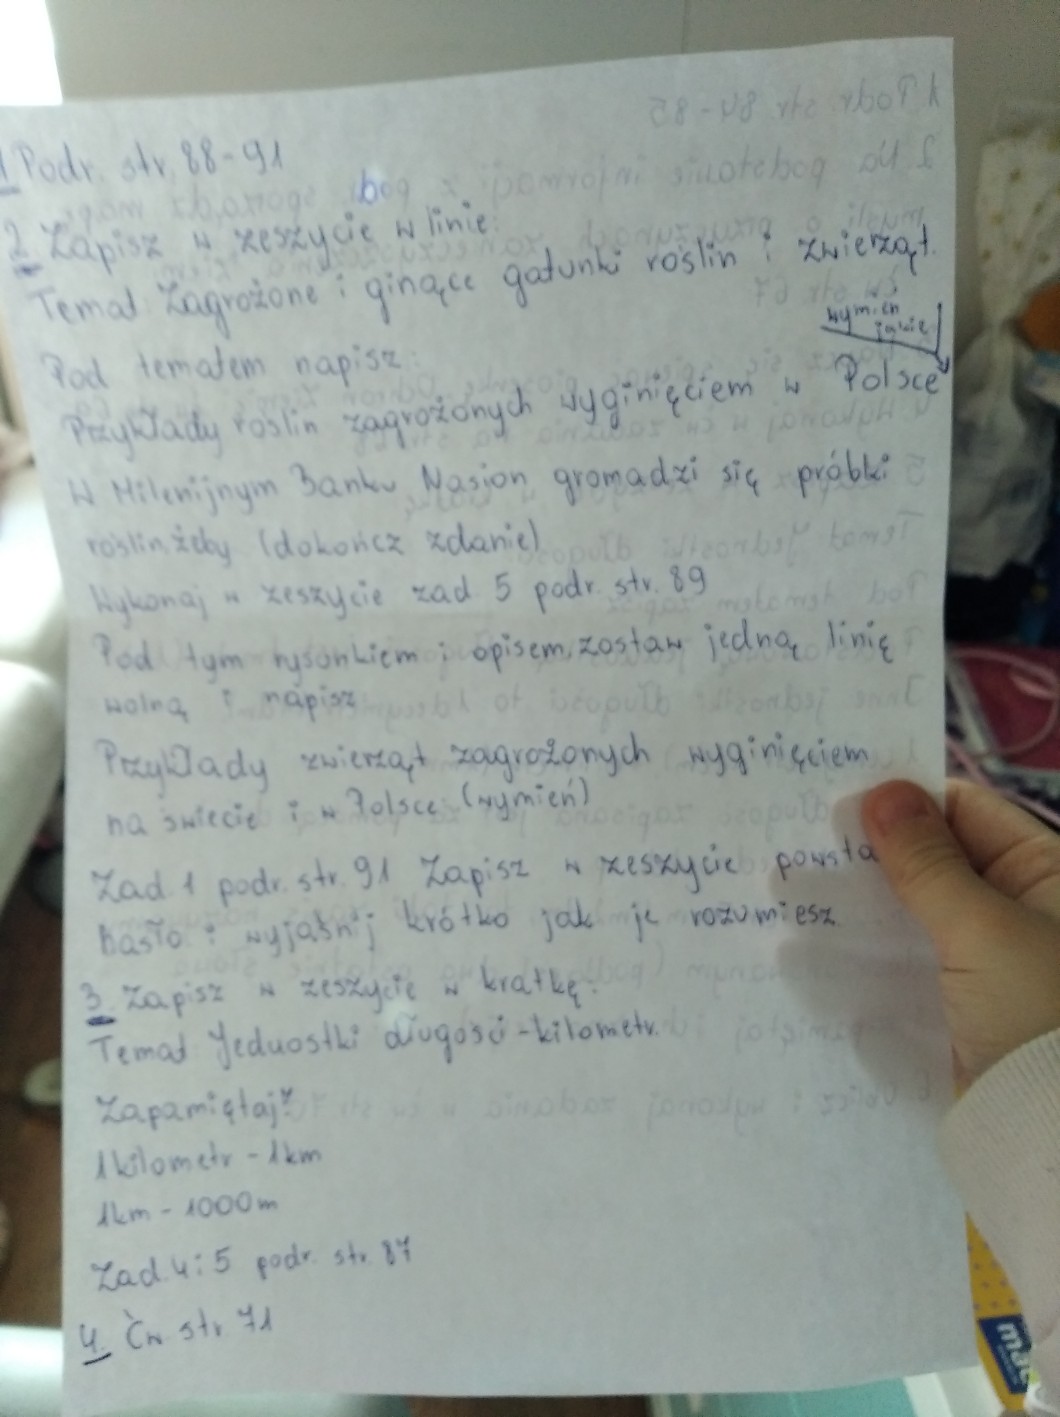 1. Podr. str. 88-91
2. Zapisz w zeszycie w linie:
Temat Zagrożone i ginące gatunki roślin i zwierząt.
wymień
jakie
Pod tematem napisz:
Przykłady roślin zagrożonych wyginięciem w Polsce
W Milenijnym Banku Nasion gromadzi się próbki
roślin, żeby (dokończ zdanie)
Wykonaj w zeszycie zad. 5 podr. str. 89
Pod tym rysunkiem i opisem, zostaw jedną linię
wolną i napisz
Przykłady zwierząt zagrożonych wyginięciem
na świecie i w Polsce (wymień)
Zad. 1 podr. str. 91 Zapisz w zeszycie powsta
hasło i wyjaśnij krótko jak je rozumiesz
3. Zapisz w zeszycie w kratkę:
Temat Jednostki długości - kilometr.
Zapamiętaj!
1 kilometr - 1km
1km - 1000m
Zad. 4 i 5 podr. str. 87
4. Ćw. str 71